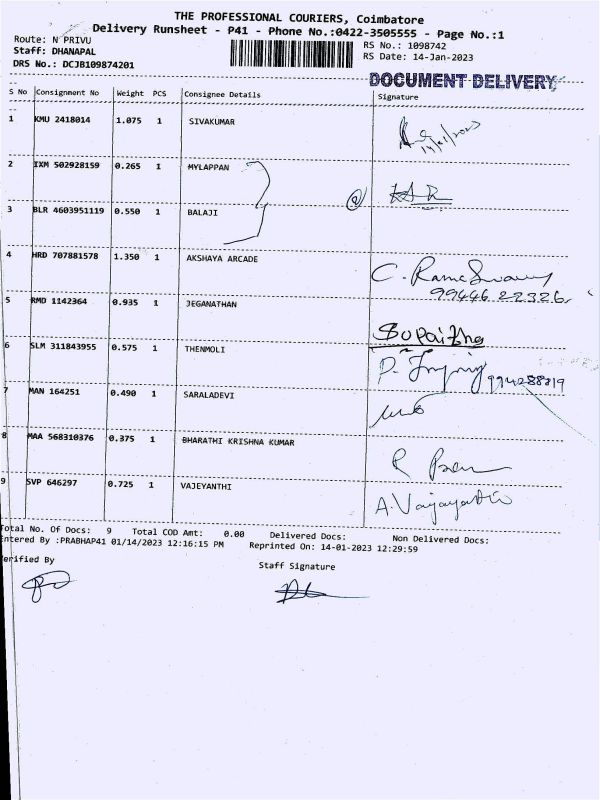 THE PROFESSIONAL COURIERS, Coimbatore
Delivery Runsheet - P41 - Phone No.:0422-3505555 - Page No.:1
Route: N PRIVU
RS No.: 1098742
Staff: DHANAPAL
RS Date: 14-Jan-2023
DRS No.: DCJB109874201
DOCUMENT DELIVERY
S No Consignment No Weight PCS Consignee Details Signature
1 KMU 2418014 1.075 1 SIVAKUMAR
14/01/2023
2 IXM 502928159 0.265 1 MYLAPPAN
3 BLR 4603951119 0.550 1 BALAJI
4 HRD 707881578 1.350 1 AKSHAYA ARCADE
C. RamaSwamy
99446 22326
5 RMD 1142364 0.935 1 JEGANATHAN
6 SLM 311843955 0.575 1 THENMOLI
7 MAN 164251 0.490 1 SARALADEVI
8 MAA 568310376 0.375 1 BHARATHI KRISHNA KUMAR
9 SVP 646297 0.725 1 VAJEYANTHI
A. Vaijayanthi
Total No. Of Docs: 9 Total COD Amt: 0.00 Delivered Docs: Non Delivered Docs:
Entered By :PRABHAP41 01/14/2023 12:16:15 PM Reprinted On: 14-01-2023 12:29:59
Verified By
Staff Signature